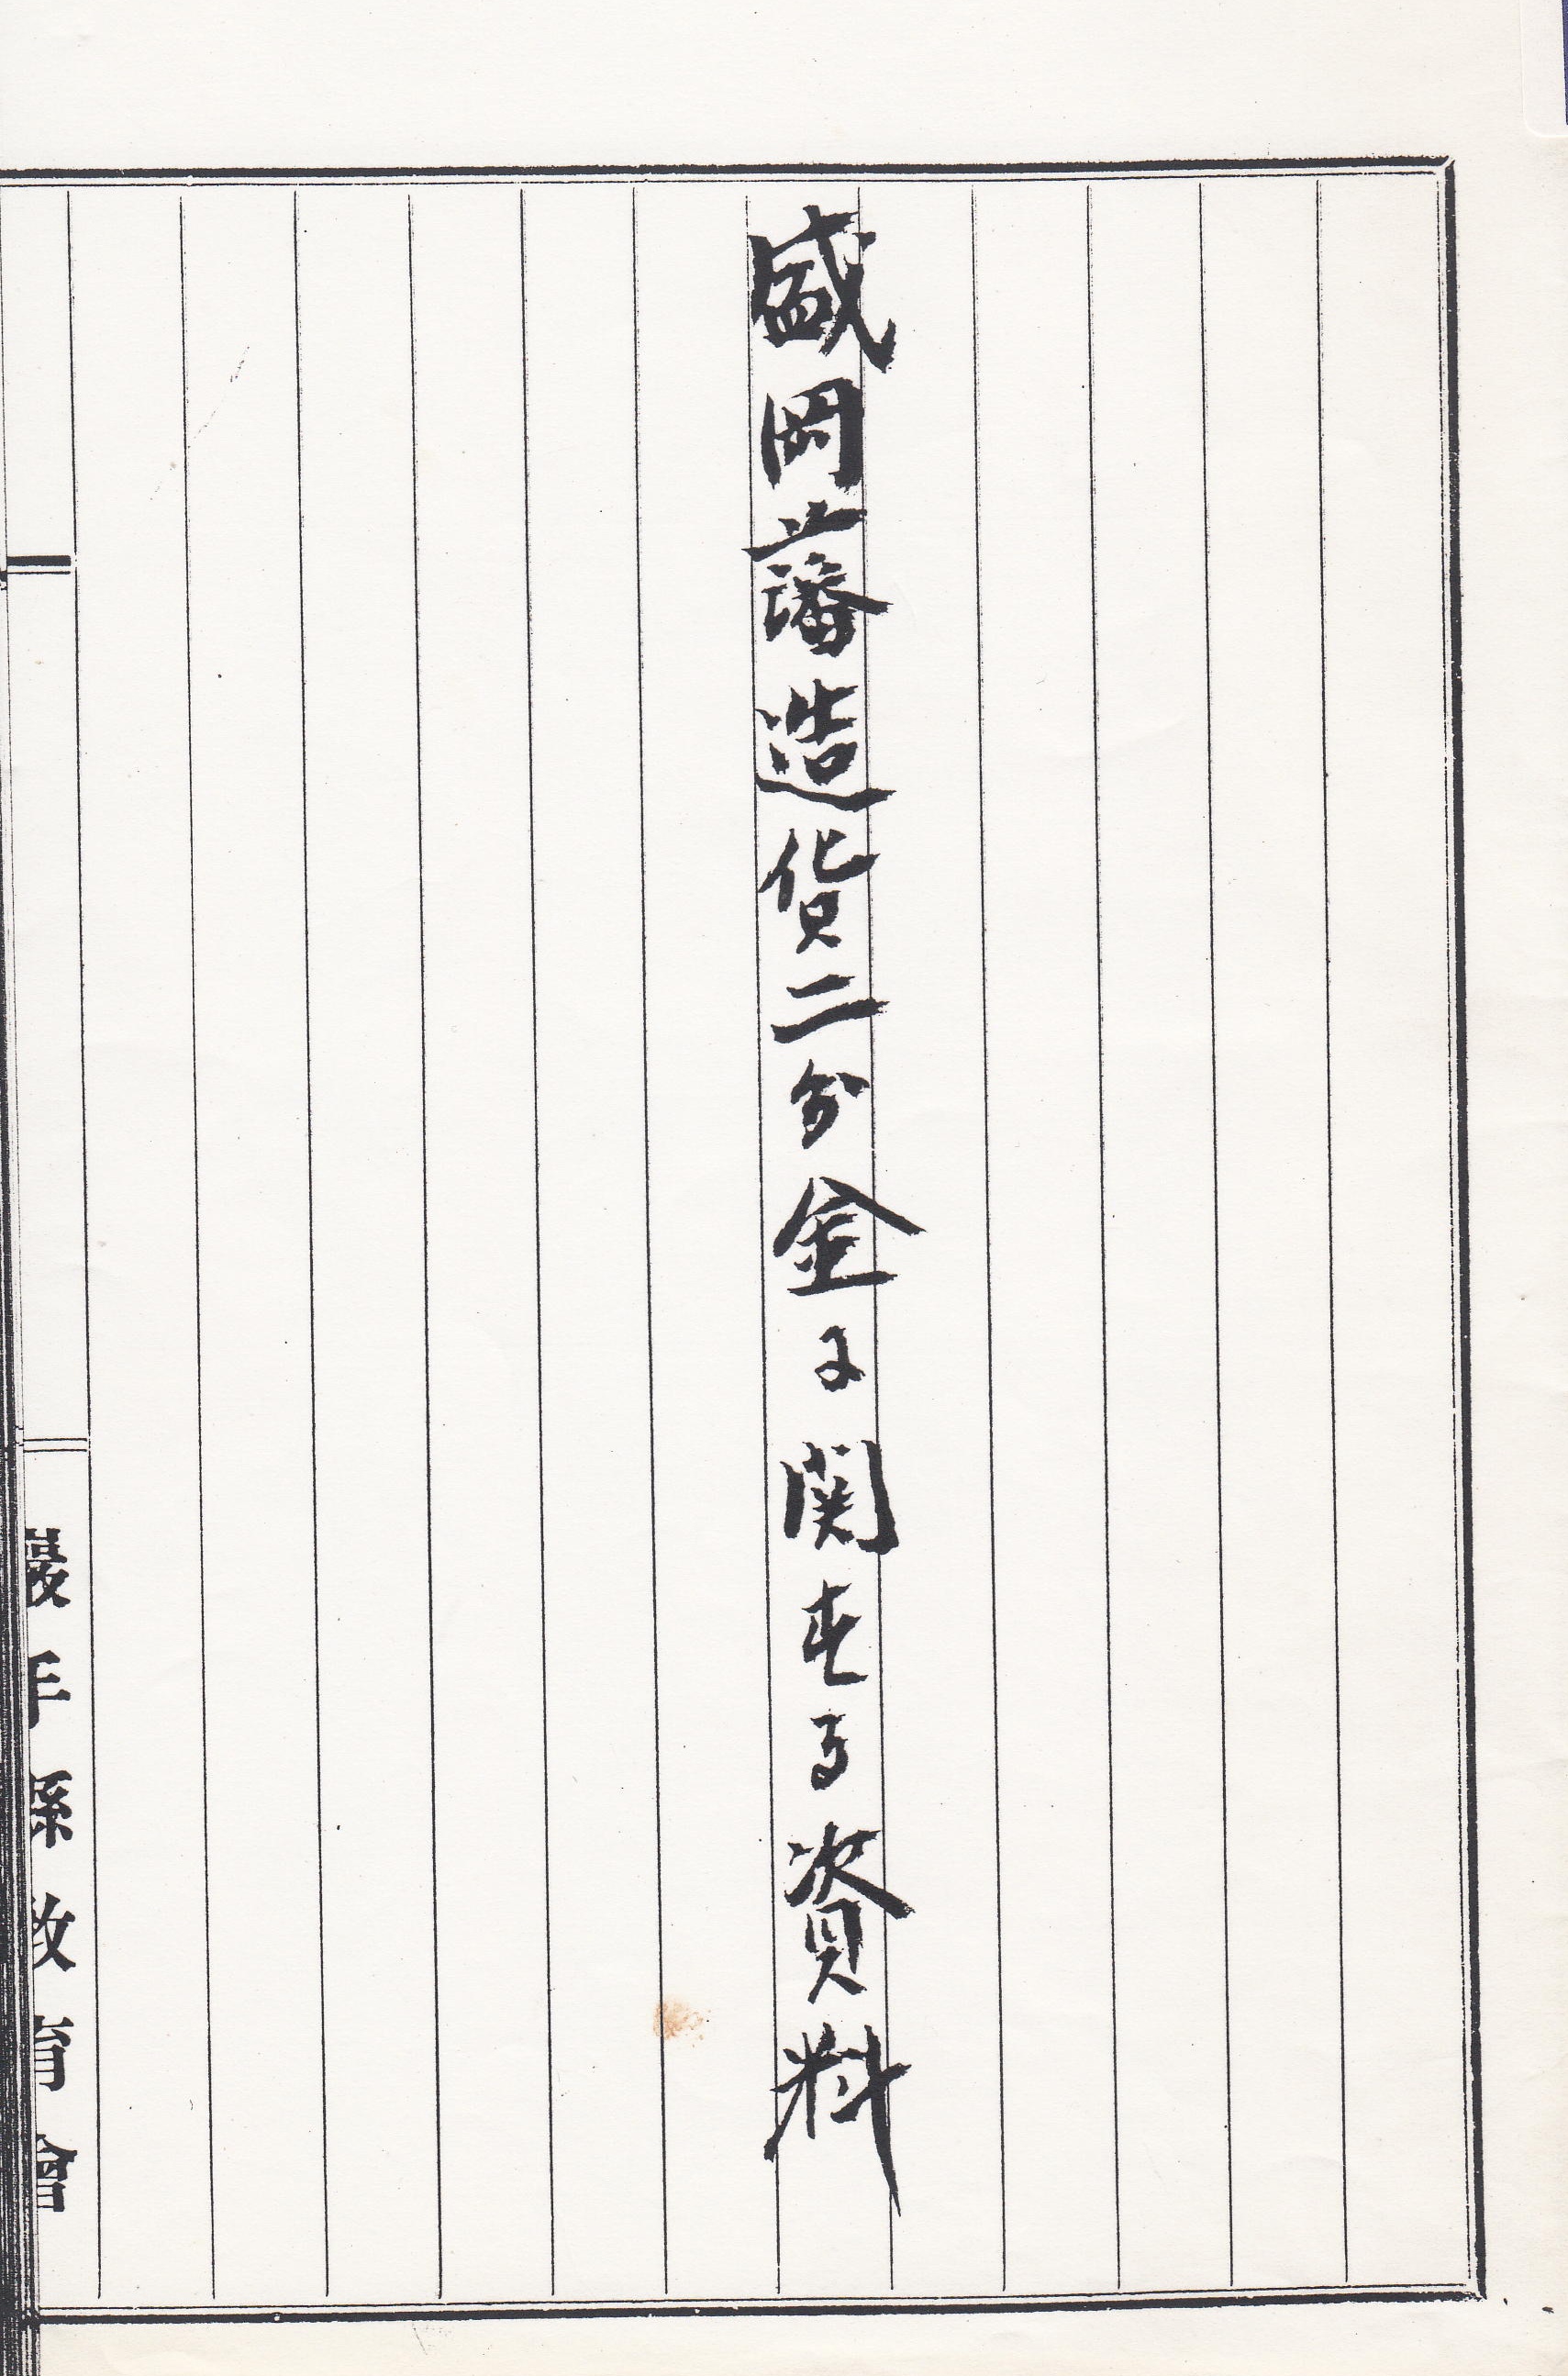 盛岡藩造貨二分金に関する資料
巖手縣教育會